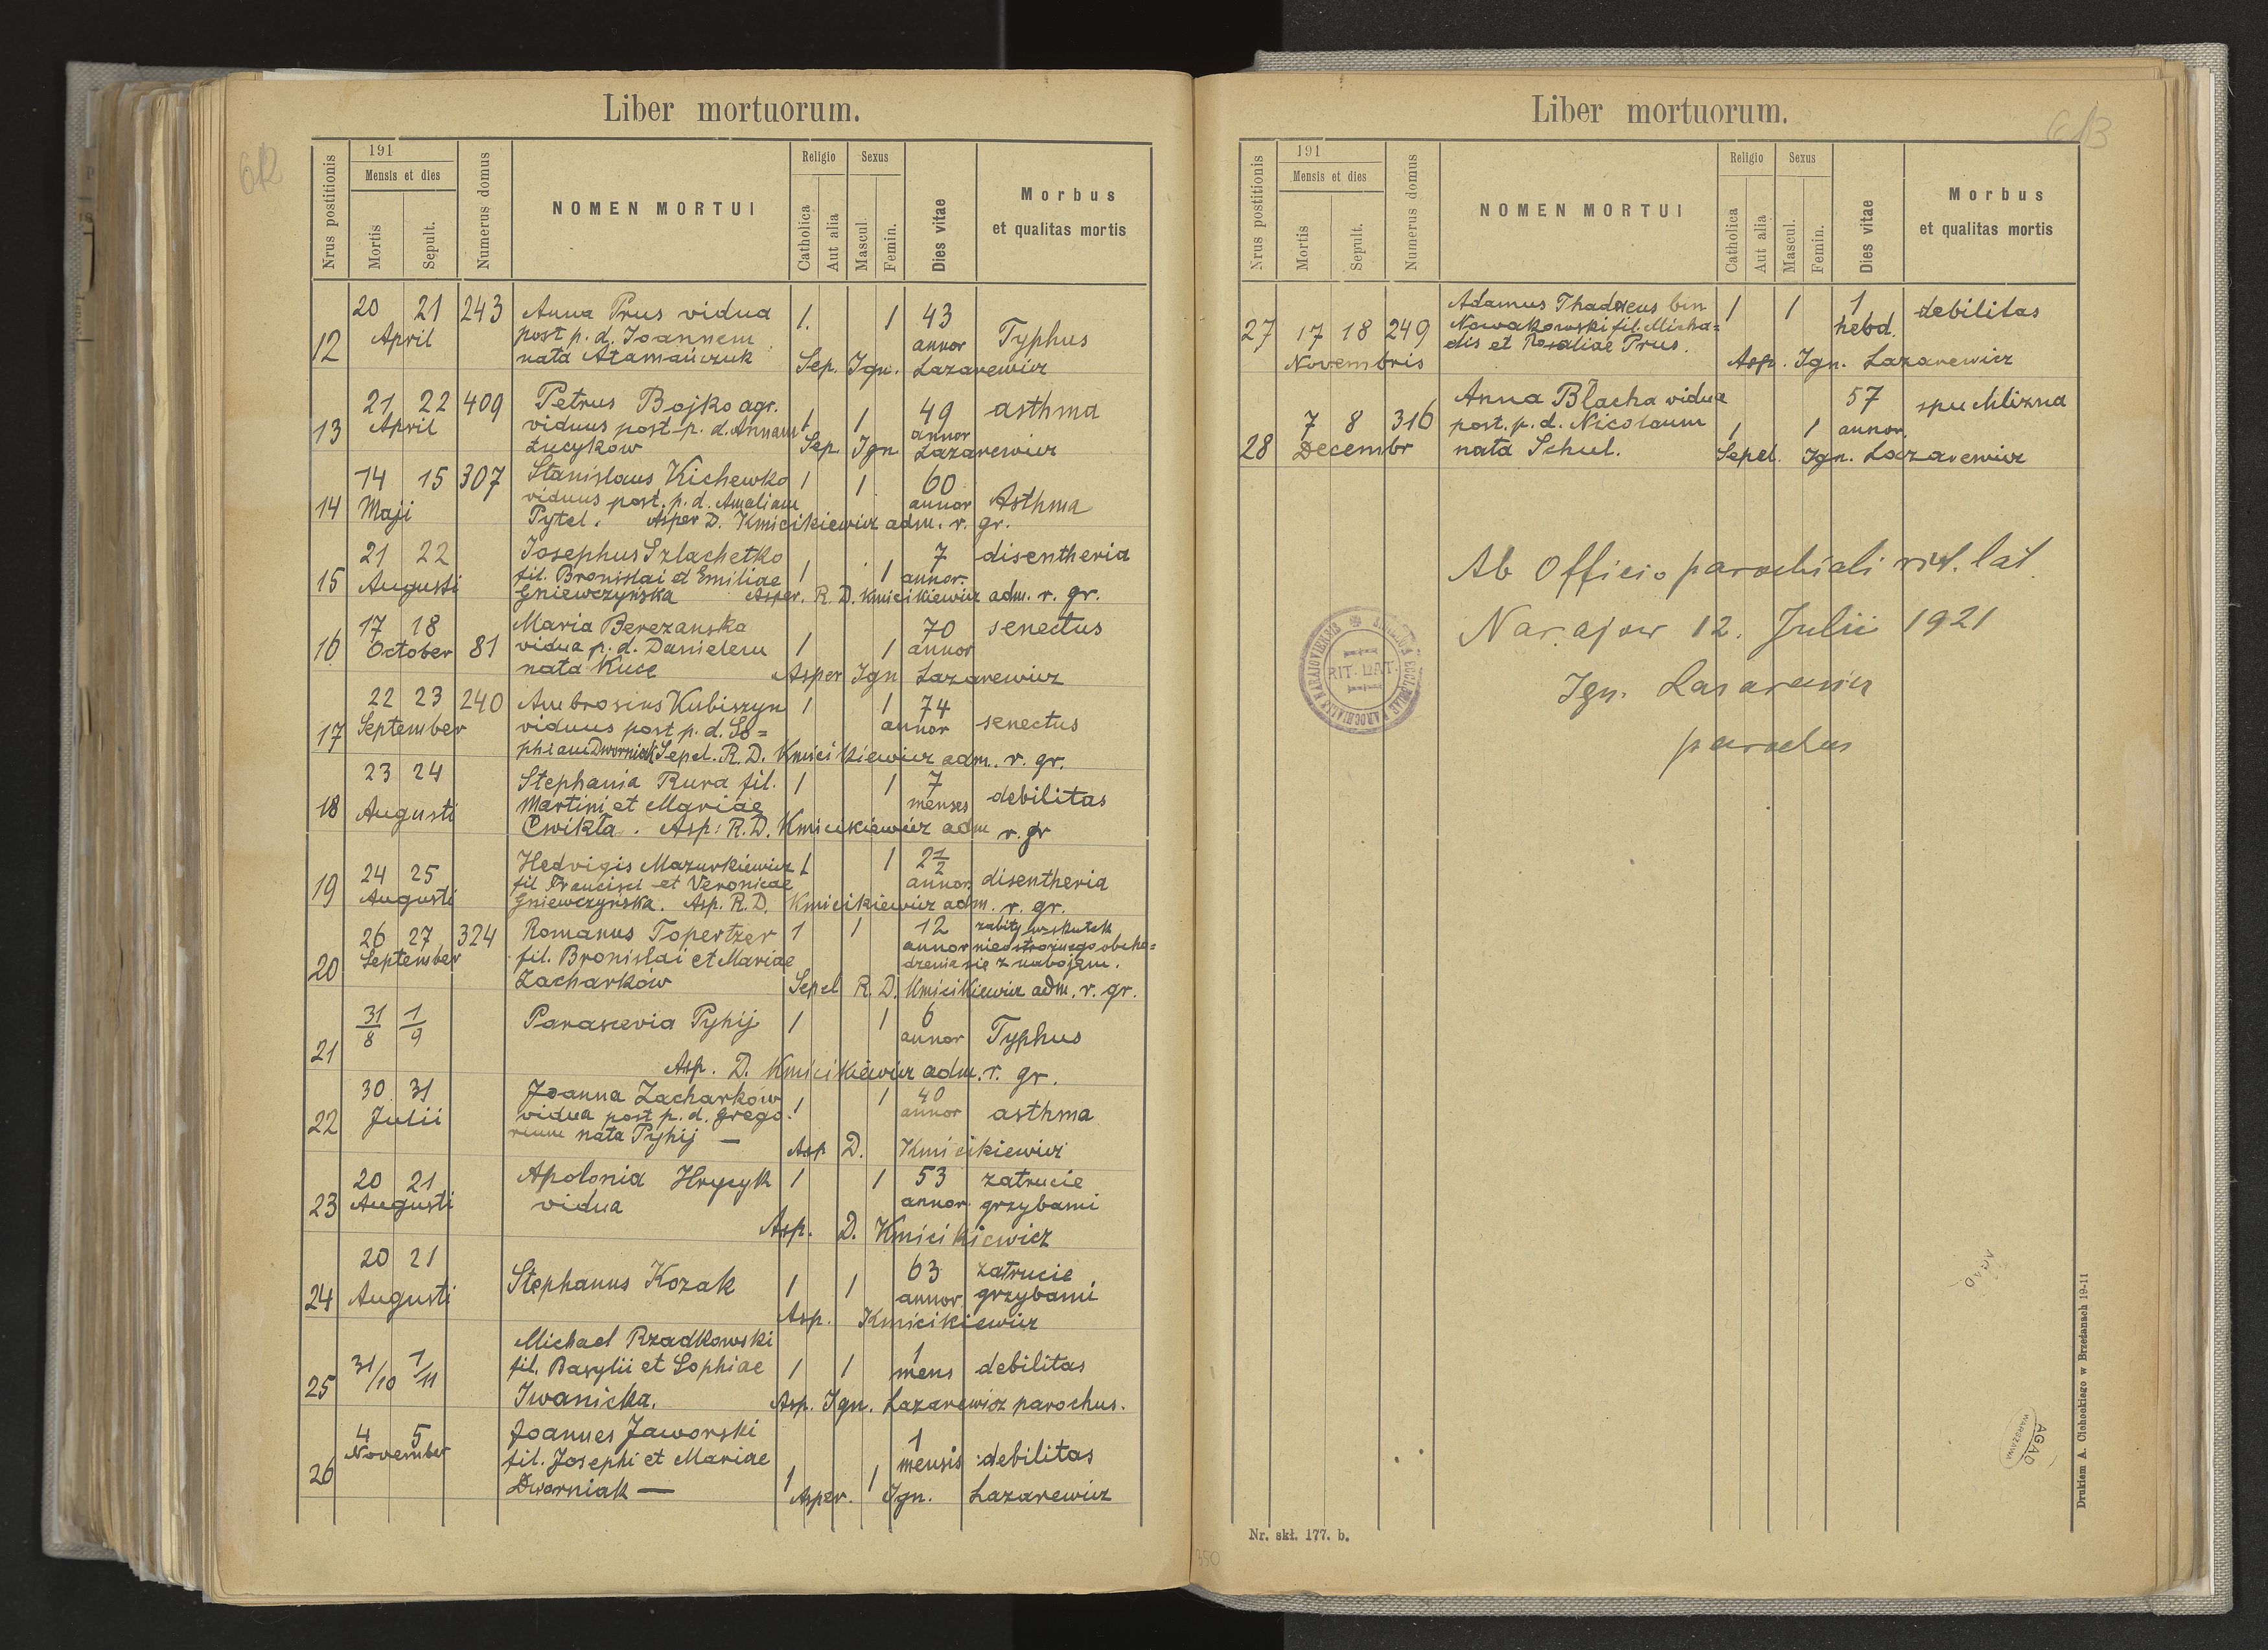 Liber mortuorum.
612
Nrus postitionis
191
Mensis et dies
Mortis
Sepult.
Numerus domus
NOMEN MORTUI
Religio
Catholica
Aut alia
Sexus
Mascul.
Femin.
Dies vitae
Morbus
et qualitas mortis
12 20 21 April 243 Anna Prus vidua 1. 1 43
post p. d. Joannem annor Typhus
nata Atamańczuk Sep. Ign. Lazarewicz
13 21 22 April 409 Petrus Bojko agr. 49 asthma
viduus post p. d. Annam 1 1 annor
Łucyków Sep. Ign Lazarewicz
14 14 15 Maji 307 Stanislaus Kichewko 1 1 60
viduus post. p. d. Amaliam annor Asthma
Pytel. Asper D. Kmicikiewicz adm. r. gr.
15 21 22 Augusti Josephus Szlachetko 7 disentheria
fil. Bronislai et Emiliae 1 1 annor.
Gniewczyńska Asper. R. D. Kmicikiewicz adm. r. gr.
16 17 18 October 81 Maria Berezanska 70 senectus
vidua p. d. Danielem 1 1 annor
nata Kucę Asper Ign Lazarewicz
17 22 23 September 240 Ambrosius Kubiszyn 1 1 74
viduus post p. d. So= annor senectus
phiam Dworniak Sepel. R. D. Kmicikiewicz adm. r. gr.
18 23 24 Augusti Stephania Rura fil. 1 1 7
Martini et Mariae menses debilitas
Cwikła. Asp: R. D. Kmicikiewicz adm r. gr
19 24 25 Augusti Hedvigis Mazurkiewicz 1 1 2 1/2
fil Francisci et Veronicae annor. disentheria
Gniewczyńska. Asp. R. D. Kmicikiewicz adm. r. gr.
20 26 27 September 324 Romanus Topertzer 1 1 12 zabity wskutek
fil. Bronislai et Mariae annor nieostrożnego obcho=
dzenia się z nabojem.
Zacharków Sepel R. D. Kmicikiewicz adm. r. gr.
21 31/8 1/9 Parascevia Pyhij 1 1 6
annor Typhus
Asp. D. Kmicikiewicz adm. r. gr.
22 30 31 Julii Joanna Zacharków 1 1 40
vidua post p. d. Grego annor asthma
rium nata Pyhij —
Asp D. Kmicikiewicz
23 20 21 Augusti Apolonia Hrycyk 1 1 53 zatrucie
vidua annor. grzybami
Asp. D. Kmicikiewicz
24 20 21 Augusti Stephanus Kozak 1 1 63 zatrucie
annor. grzybami
Asp. Kmicikiewicz
25 31/10 1/11 Michael Rzadkowski
fil. Basylii et Sophiae 1 1 1 mens debilitas
Iwanicka. Asp. Ign. Lazarewicz parochus.
26 4 5 November Joannes Jaworski 1
fil. Josephi et Mariae mensis debilitas
Dworniak — 1 1 Asper. Ign. Lazarewicz
Liber mortuorum.
613
Nrus postitionis
191
Mensis et dies
Mortis
Sepult.
Numerus domus
NOMEN MORTUI
Religio
Catholica
Aut alia
Sexus
Mascul.
Femin.
Dies vitae
Morbus
et qualitas mortis
27 17 18 Novembris 249 Adamus Thadaeus bin 1 1 1 debilitas
Nowakowski fil. Micha= hebd.
elis et Rosaliae Prus.
Asp. Ign. Lazarewicz
28 7 8 Decembr 316 Anna Blacha vidua 57 spuchlizna
post. p. d. Nicolaum 1 1 annor.
nata Schul. Sepel. Ign. Lazarewicz
Ab Officio parochiali rit. lat.
Narajow 12. Julii 1921
Ign. Lazarewicz
parochus
RIT. LAT.
AGAD
AGAD
WARSZAWA
Nr. skł. 177. b.
Drukiem A. Cichockiego w Brzeżanach 19-11
350